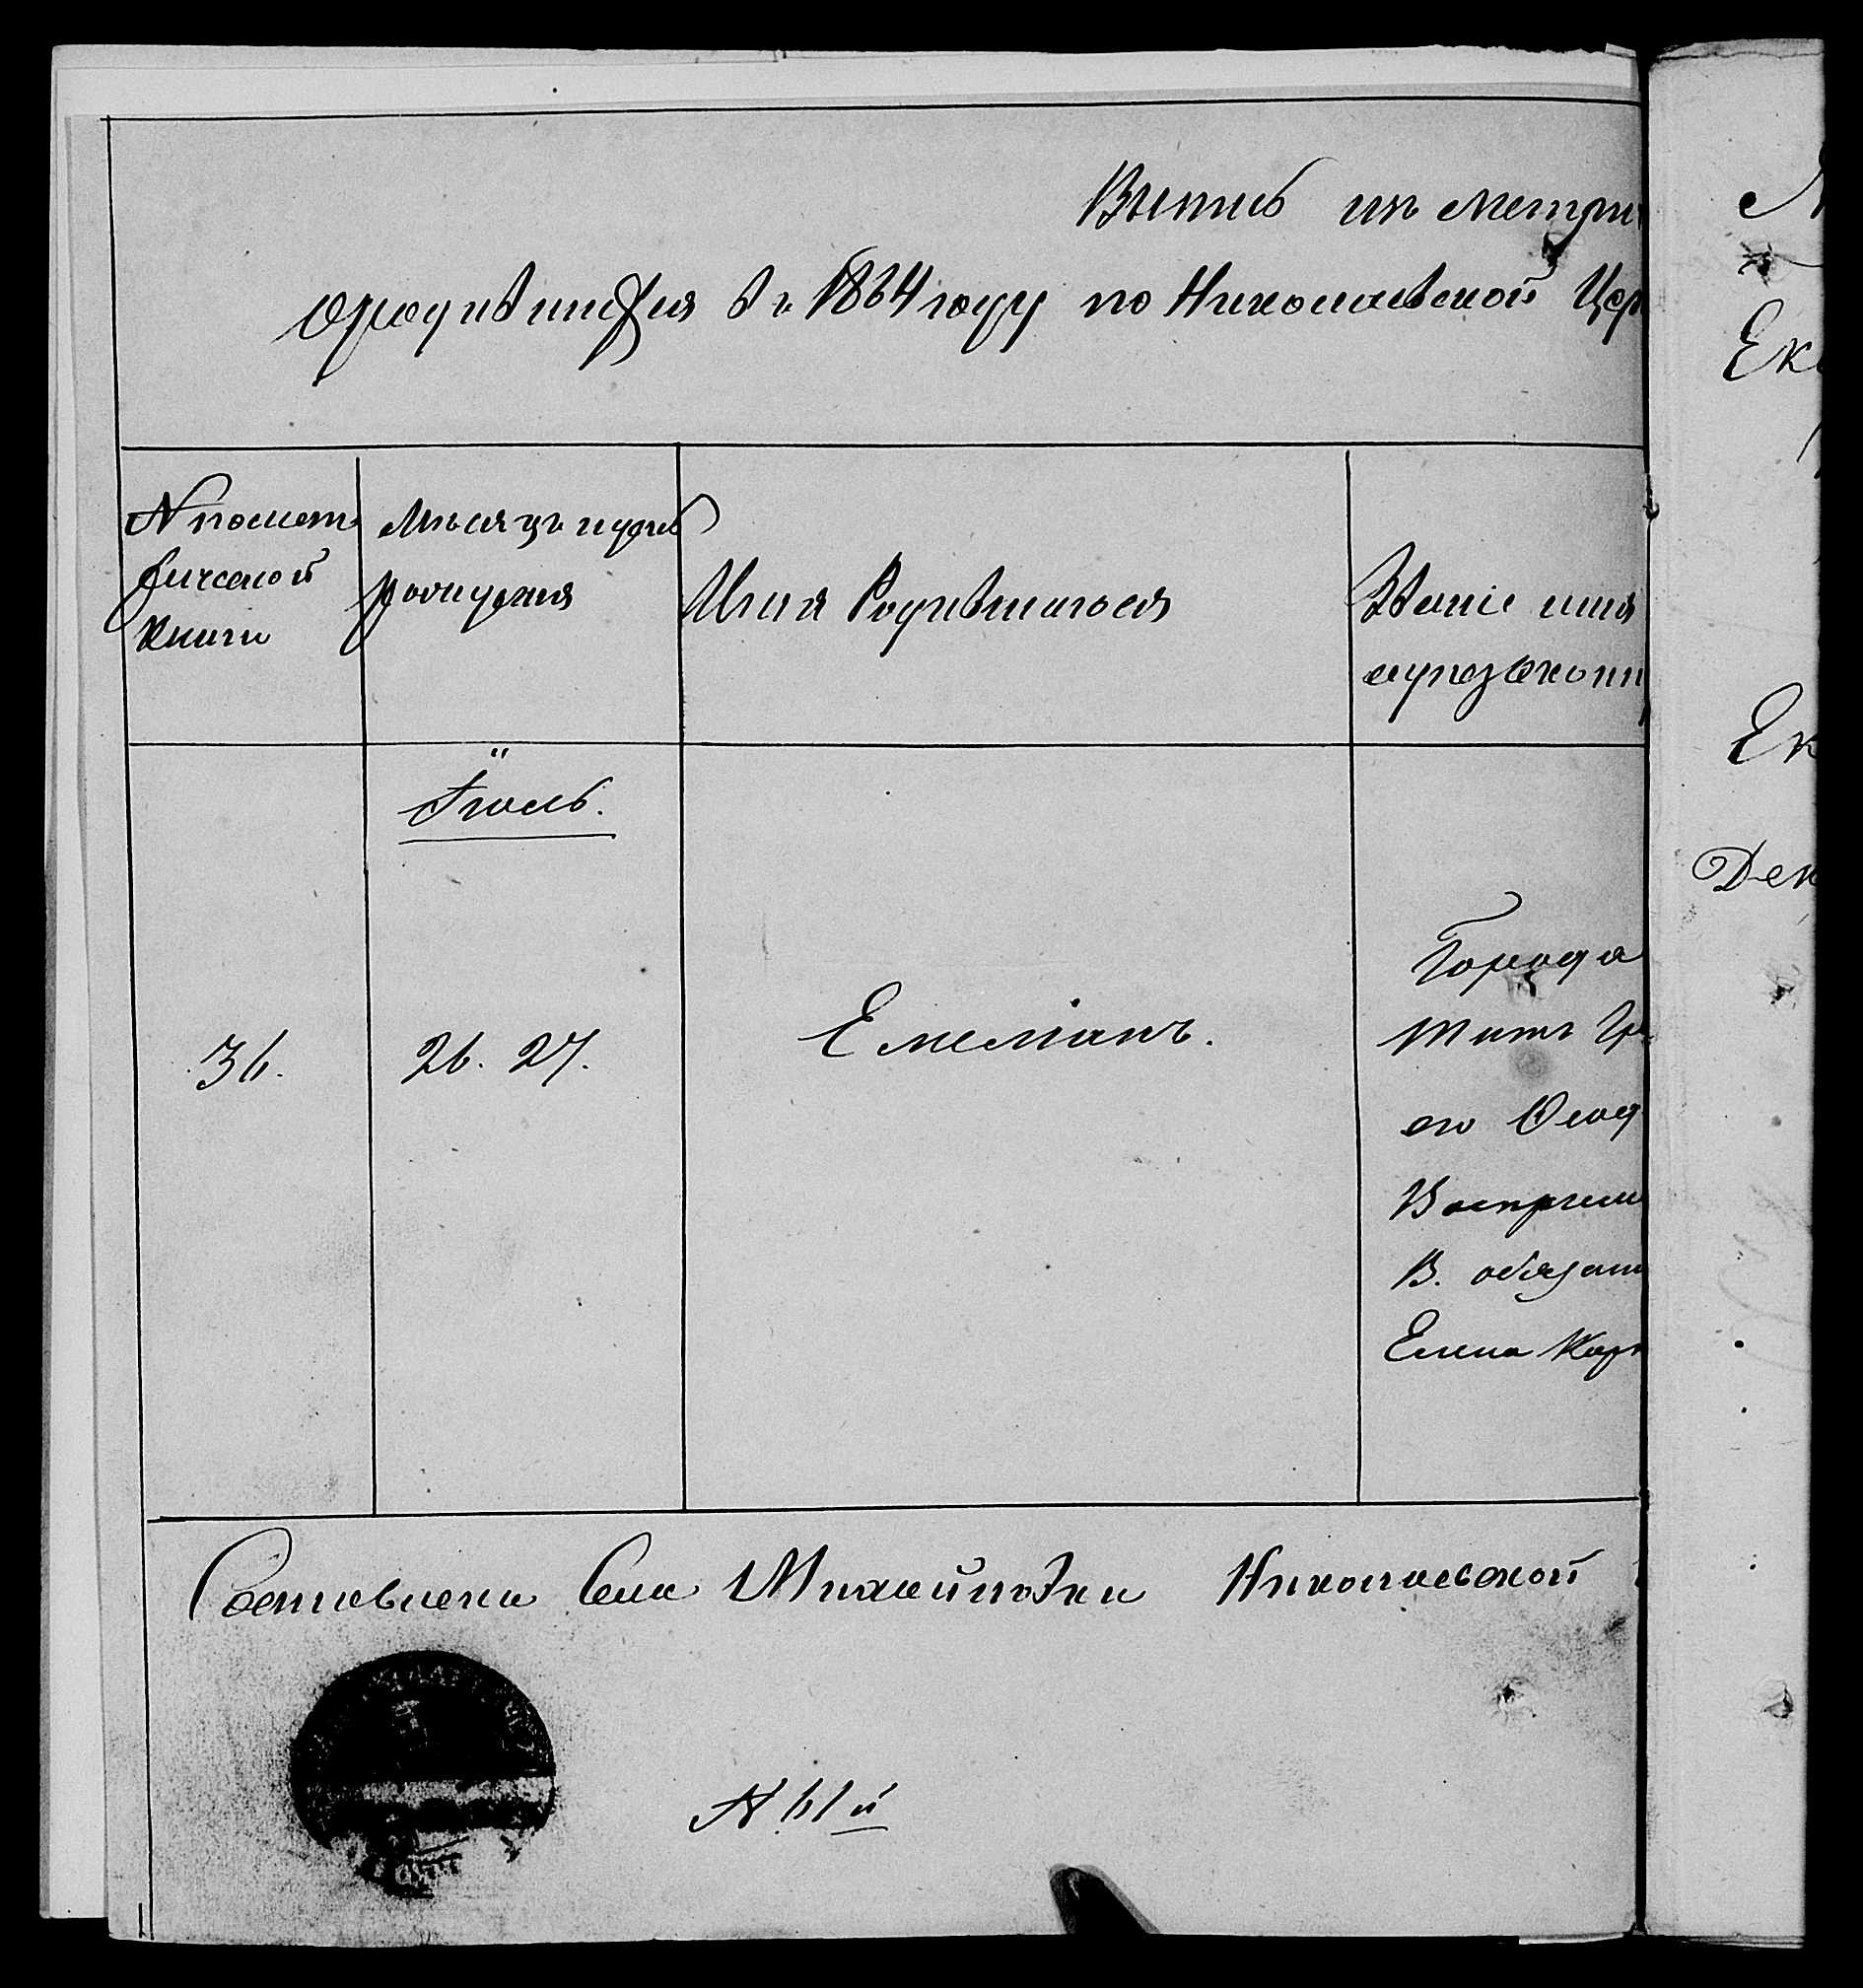 Выпись изъ метри
о родившихся въ 1864 году по Николаевской Цер
№ по мет
рической
книги
Мѣсяцъ и день
рождения
Имя Родившагося
Званіе имя
Іюль.
36.
26. 27.
Емеліанъ.
Города
его
Воспрiем
В. обязан
Елена Кар
Составлена Села Николаевской
№ 61й
Ек
Ек
Дек